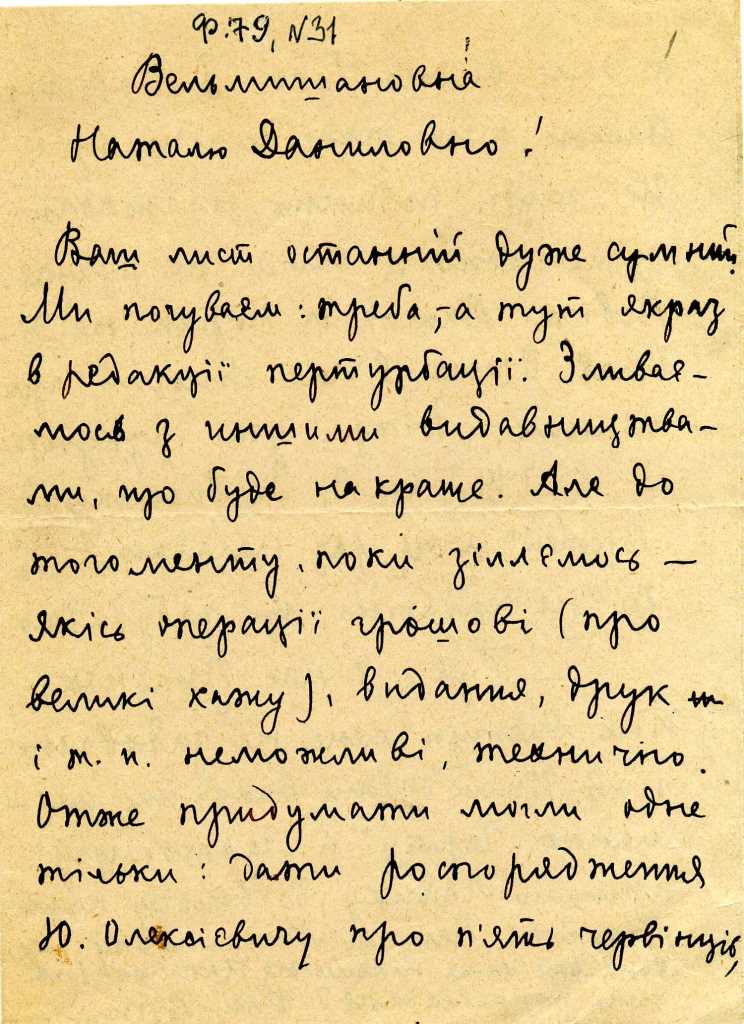 Ф.79, №31
Вельмишановна
Наталю Даниловно!
Ваш лист останній дуже сумний.
Ми почуваєм: треба, - а тут якраз
в редакції пертурбації. Зливає-
мось з иншими видавництва-
ми, що буде на краще. Але до
того менту, поки зіллємось —
якісь операції грошові (про
великі кажу), видання, друк
і т. п. неможливі, технично.
Отже придумати могли одне
тільки: дати роспорядження
Ю. Олексієвичу про п'ять червінців,